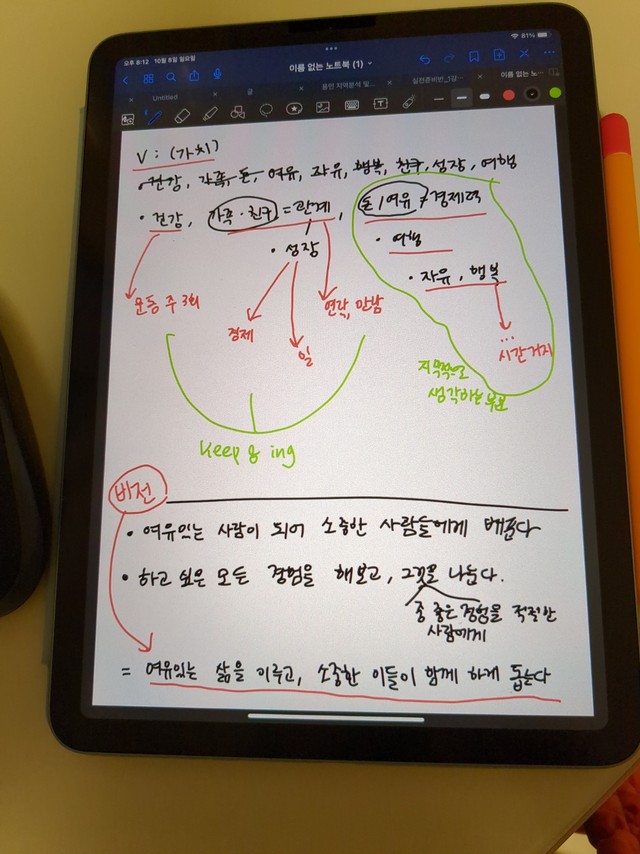 오후 8:12 10월 8일 일요일
81%
이름 없는 노트북 (1)
Untitled
글
용인 지역분석 및...
실전준비반_1강...
이름 없는 노트...
V : (가치)
건강, 가족, 돈, 여유, 자유, 행복, 친구, 성장, 여행
• 건강, 가족 · 친구 = 관계, 돈/여유 ≠ 경제력
• 성장
• 여행
• 자유, 행복
운동 주 3회
경제
일
연락, 만남
...
시간거지
지목적으로
생각하는 부분
keep & ing
비전
• 여유있는 사람이 되어 소중한 사람들에게 베푼다
• 하고 싶은 모든 경험을 해보고, 그것을 나눈다.
좀 좋은 경험을 적절한
사람에게
= 여유있는 삶을 이루고, 소중한 이들이 함께 하게 돕는다